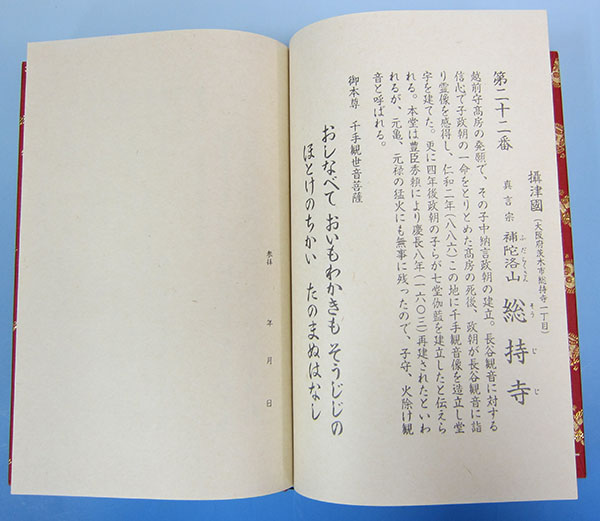 攝津國(大阪府茨木市総持寺一丁目)
第二十二番
真言宗 補陀洛山 総持寺
ふだらくさん そうじじ
越前守高房の発願で、その子中納言政朝の建立。長谷観音に対する
信心で子政朝の一命をとりとめた高房の死後、政朝が長谷観音に詣
り霊像を感得し、仁和二年(八八六)この地に千手観音像を造立し堂
宇を建てた。更に四年後政朝の子らが七堂伽藍を建立したと伝えら
れる。本堂は豊臣秀頼により慶長八年(一六〇三)再建されたといわ
れるが、元亀、元禄の猛火にも無事に残ったので、子守、火除け観
音と呼ばれる。
御本尊 千手観世音菩薩
おしなべて おいもわかきも そうじじの
ほとけのちかい たのまぬはなし
参拝 年 月 日